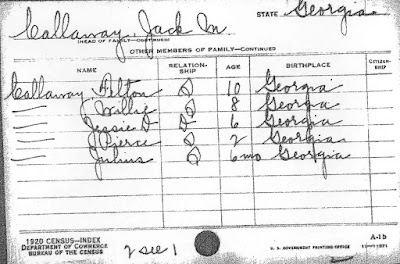 STATE Georgia
Callaway, Jack M.
(HEAD OF FAMILY—CONTINUED)
OTHER MEMBERS OF FAMILY—CONTINUED
NAME RELATION-SHIP AGE BIRTHPLACE CITIZEN-SHIP
Callaway, Felton 10 Georgia
— J. Willie 8 Georgia
— Jessie D 6 Georgia
— J. Pierce 2 Georgia
— Julius 6 mo Georgia
1920 CENSUS—INDEX A-1b
DEPARTMENT OF COMMERCE
BUREAU OF THE CENSUS
2 see 1
U. S. GOVERNMENT PRINTING OFFICE